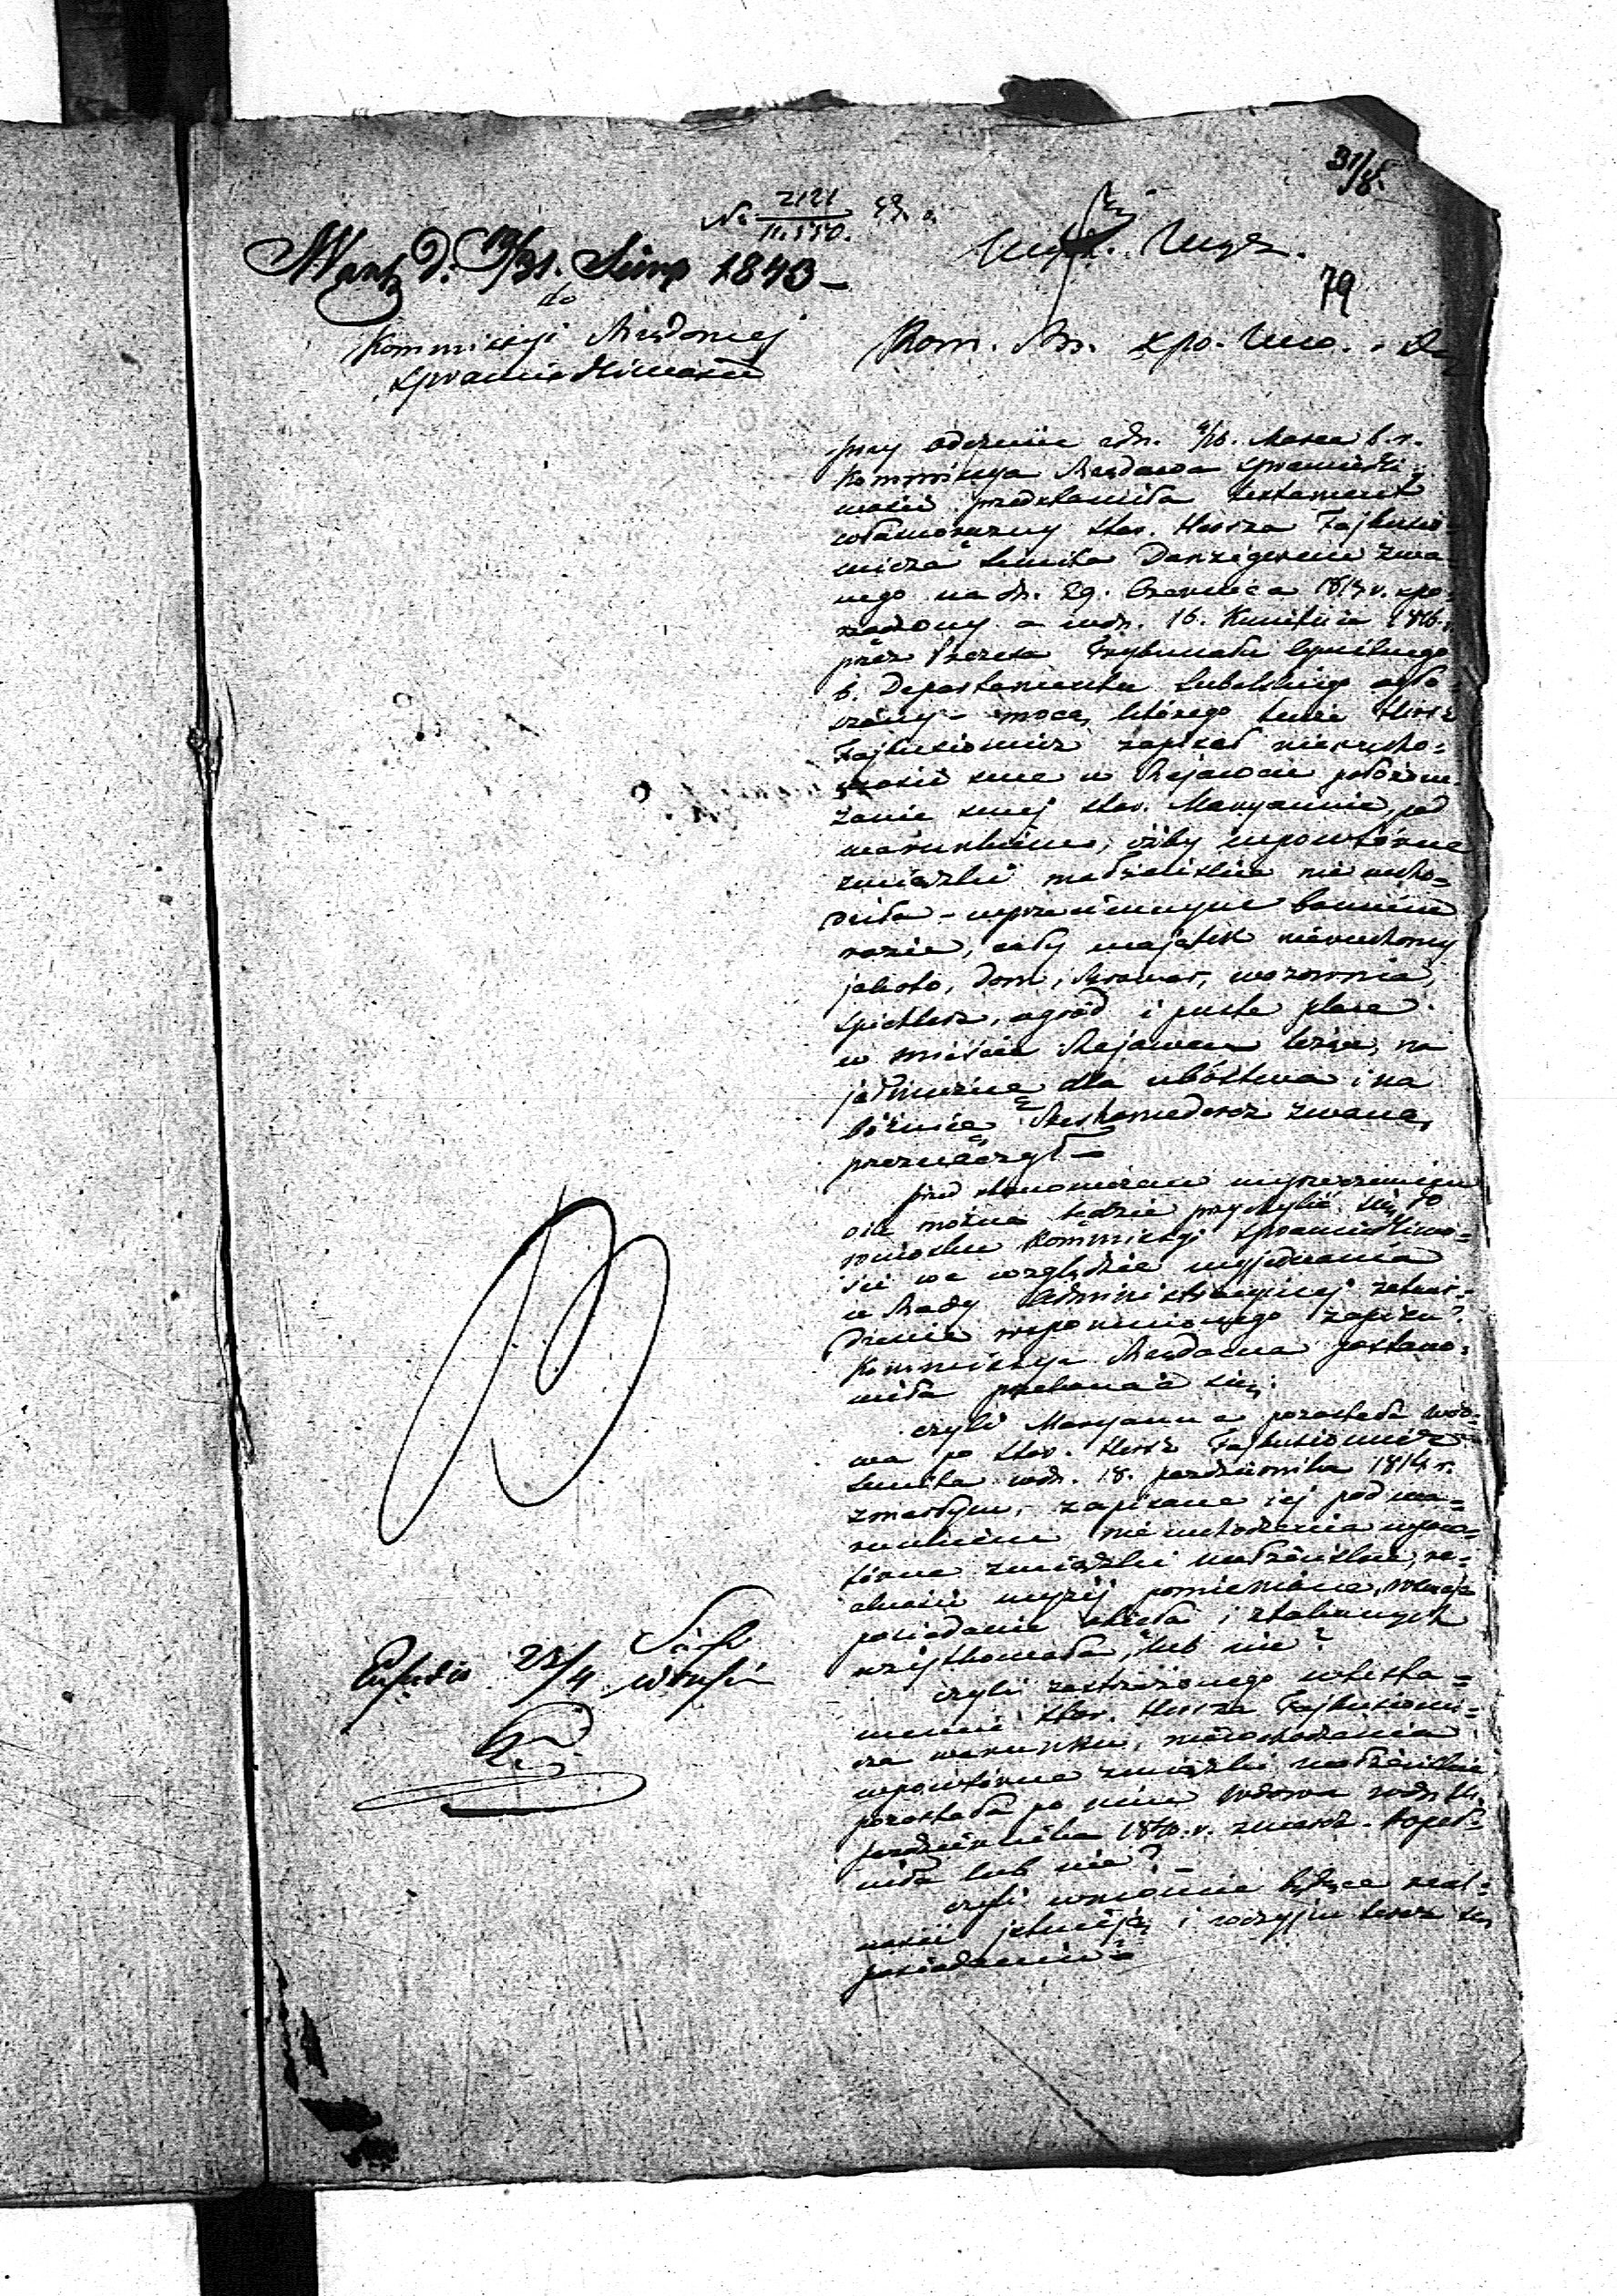 31/8.
No 2121/11.550.
Warsz. d. 19/31. Sierp 1843 –
79
do
Kommissyi Rządowej
Sprawiedliwości
Kom. Rz. Spr. Wew. i D.
przy odezwie z dn. 4/16. Marca b. r.
Kommissya Rządowa Sprawiedli=
wości przedstawiła testament
własnoręczny star. Hersza Fajbusio=
wicza Lewita Danzigerem zwa=
nego na dn. 29. Czerwca 1813 r. spo=
rządzony a w dn. 16. Kwietnia 1816 r.
przez Prezesa Trybunału Cywilnego
b. Departamentu Lubelskiego ogło=
szony – mocą którego tenże Hersz
Fajbusiowicz zapisał nierucho=
mości swe w Rejowcu położone
żonie swej star. Maryannie, pod
warunkiem, iżby w powtórne
związki małżeńskie nie wcho=
dziła – w przeciwnym bowiem
razie, cały majątek nieruchomy
jakoto, dom, browar, wozownia,
spichlerz, ogród i puste place
w mieście Rejowcu leżące, na
jałmużnę dla ubóstwa i na
bóżnicę Beshamedresz zwaną,
przeznaczył –
przed stanowczem wyrzeczeniem
o ile można będzie przychylić się do
wniosku Kommissyi Sprawiedliwo=
ści we względzie wyjednania
u Rady Administracyjnej zatwier=
dzenia wspomnionego zapisu?
Kommissya Rządowa postano=
wiła przekonać się:
czyli Maryanna pozostała wdo=
wa po star. Hersz Fajbusiowicz
Lewita w dn. 18. października 1814 r.
zmarłym, zapisane jej pod wa=
runkiem nie wchodzenia w pow=
tórne związki małżeńskie, re=
alności wyżej pomienione, w swoje
posiadanie objęła i z takowych
użytkowała, lub nie?
czyli zastrzeżonego w testa=
mencie star. Hersza Fajbusiowi=
cza warunku, niewchodzenia
w powtórne związki małżeńskie
pozostała po nim wdowa w dn.
października 1840. r. zmarła dopeł=
niła lub nie?
czyli w mowie będące real=
ności istnieją i w czyjem teraz są
posiadaniu –
Expedio 22/4